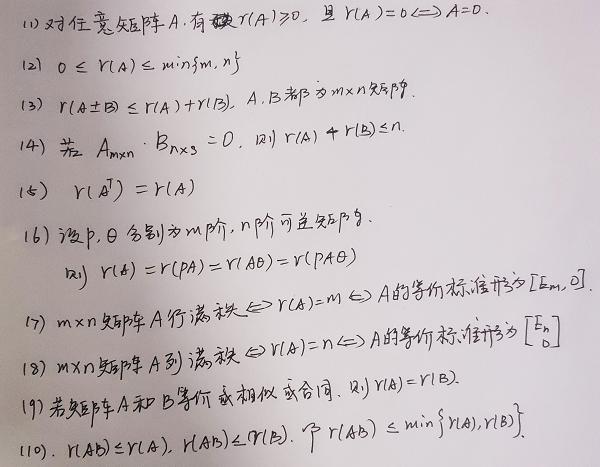 (1) 对任意矩阵A,有r(A)≥0,且r(A)=0⟺A=0.
(2) 0≤r(A)≤min{m,n}
(3) r(A±B)≤r(A)+r(B). A,B都为m×n矩阵.
(4) 若 Aₘₓₙ·Bₙₓₛ=0,则r(A)+r(B)≤n.
(5) r(Aᵀ)=r(A)
(6) 设P,Q分别为m阶,n阶可逆矩阵.
则 r(A)=r(PA)=r(AQ)=r(PAQ)
(7) m×n矩阵A行满秩⟺r(A)=m⟺A的等价标准形为[Eₘ,0].
(8) m×n矩阵A列满秩⟺r(A)=n⟺A的等价标准形为[Eₙ 0]
(9) 若矩阵A和B等价或相似或合同.则r(A)=r(B).
(10). r(AB)≤r(A), r(AB)≤r(B). 即r(AB)≤min{r(A),r(B)}.